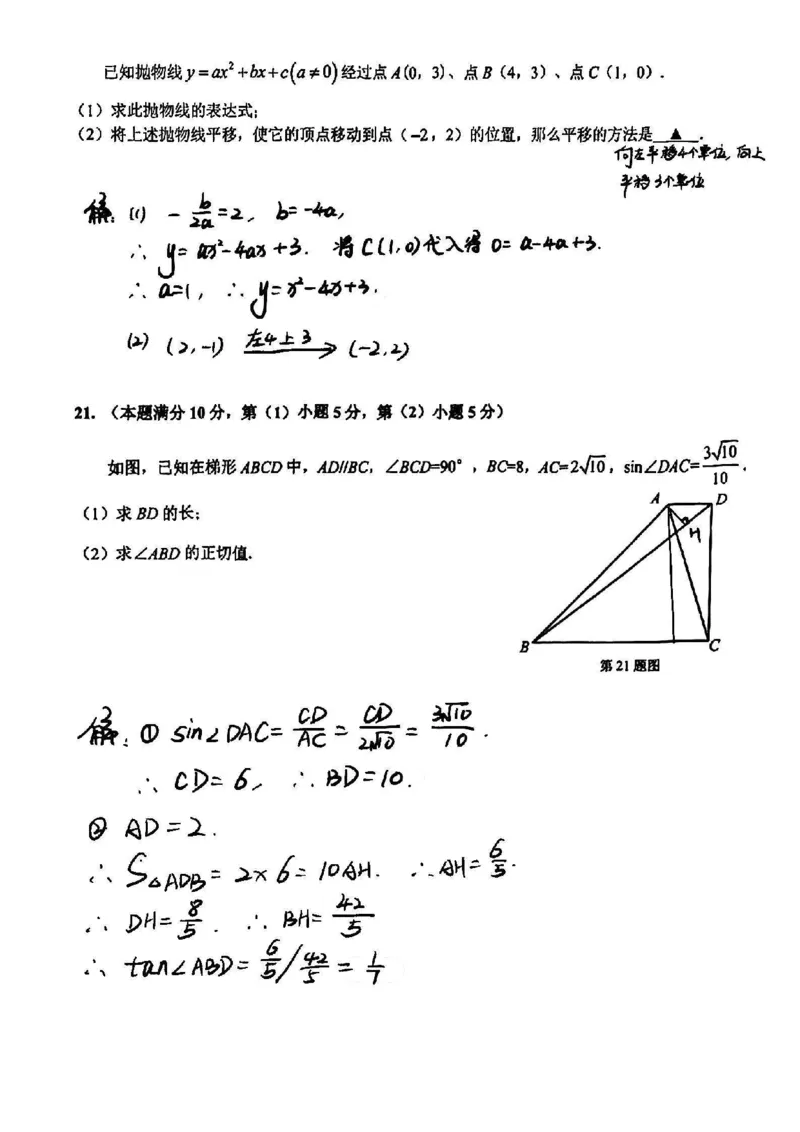 已知抛物线 y=ax²+bx+c(a≠0) 经过点 A(0，3)、点 B（4，3）、点 C（1，0）.
（1）求此抛物线的表达式;
（2）将上述抛物线平移，使它的顶点移动到点（-2，2）的位置，那么平移的方法是 ▲ .
向左平移4个单位, 向上
平移3个单位
解: (1) -b/2a=2, b=-4a,
∴ y=ax²-4ax+3. 将C(1,0)代入得 0=a-4a+3.
∴ a=1, ∴ y=x²-4x+3.
(2) (2,-1) 左4上3→ (-2,2)
21. （本题满分 10 分，第（1）小题 5 分，第（2）小题 5 分）
如图，已知在梯形 ABCD 中，AD//BC，∠BCD=90°，BC=8，AC=2√10，sin∠DAC=3√10/10.
（1）求 BD 的长;
（2）求∠ABD 的正切值.
A D
H
B C
第 21 题图
解: ① sin∠DAC=CD/AC=CD/2√10=3√10/10.
∴ CD=6, ∴ BD=10.
② AD=2.
∴ S△ADB=2×6=10AH. ∴AH=6/5.
∴ DH=8/5. ∴ BH=42/5
∴ tan∠ABD=6/5/42/5=1/7